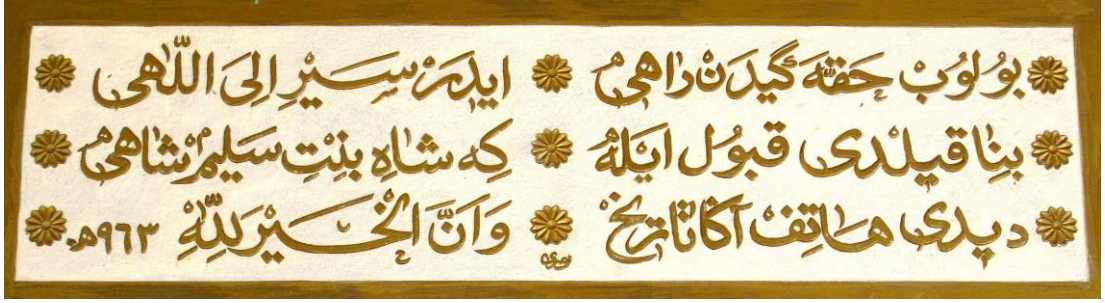 بُولُوبْ حَقَّه گيدَنْ رَاهِى ايدَرْ سَيْرِ اِلَى اللّٰهِى
بِنَا قيلدى قَبُول اَيْلَه كِه شَاهِ بِنْتِ سَلِيمْ شَاهِى
ديدى هَاتِفْ آكَا تَارِيخْ وَاَنَّ الْخَيْرَ لِلّٰهِ ٩٦٣هـ